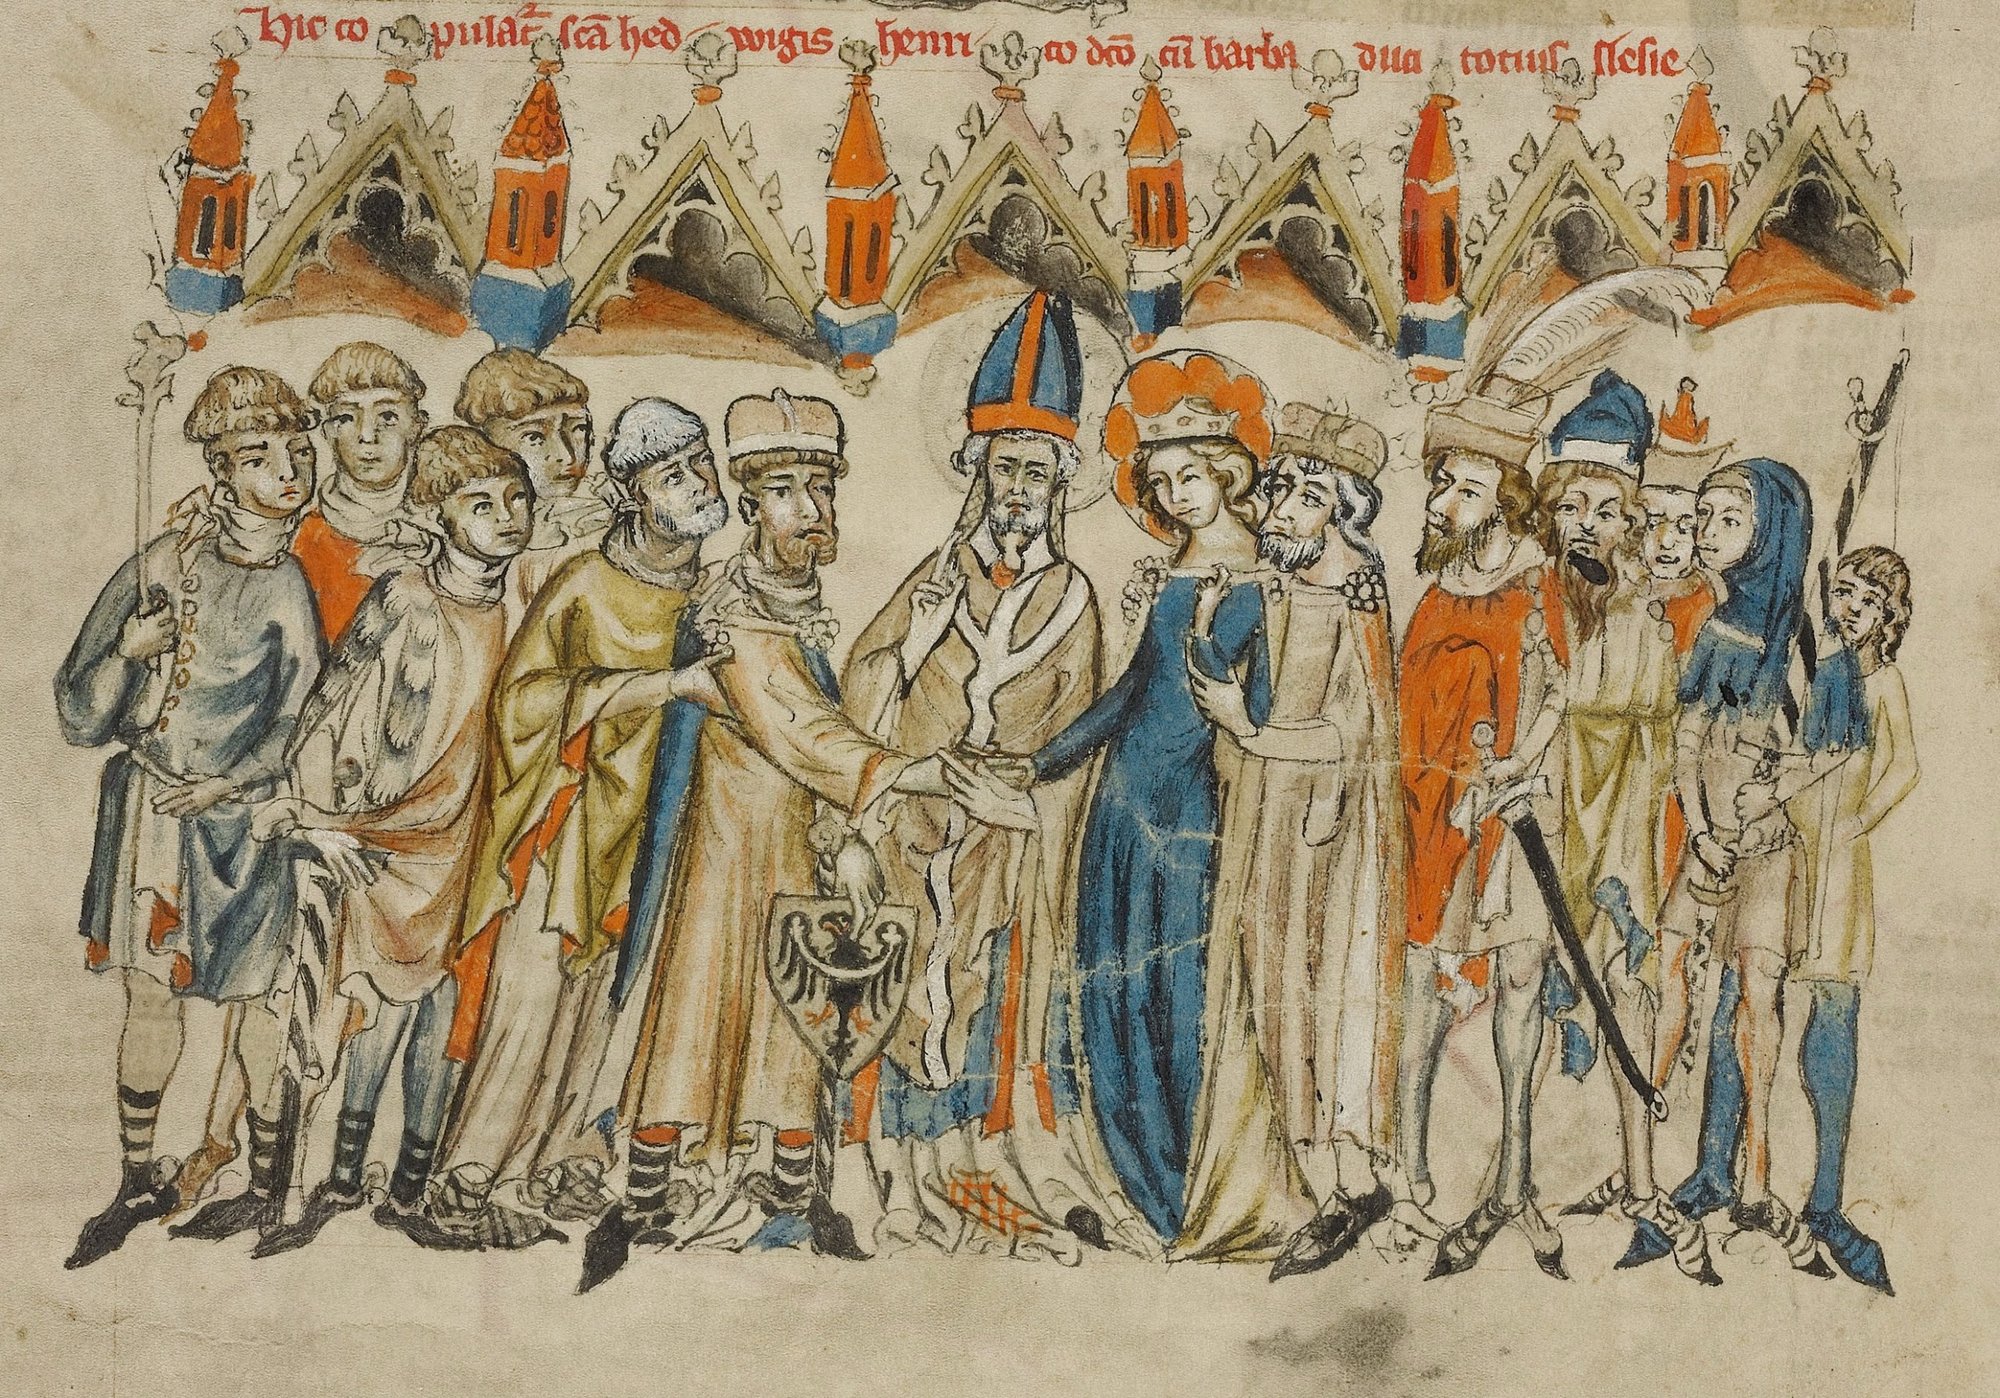 Hic copulat᷑ scā hedwigis henrico dc̄o cū barba duci totius slesie